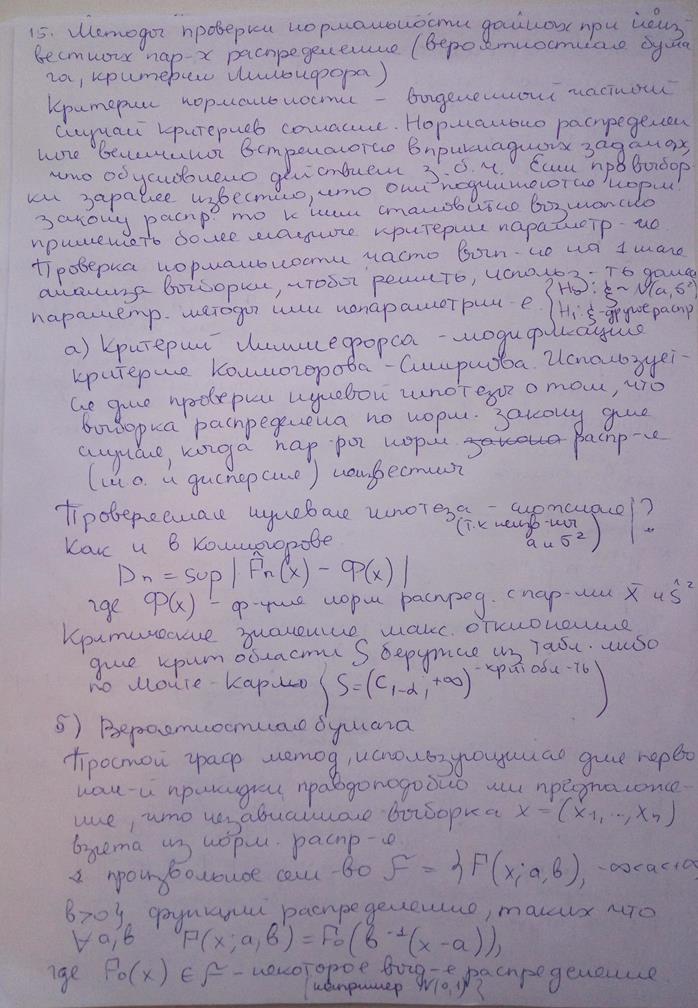 15. Методы проверки нормальности данных при неиз-
вестных пар-х распределения (вероятностная бума
га, критерий Лильифора)
Критерии нормальности – выделенный частный
случай критериев согласия. Нормально распределен
ные величины встречаются в прикладных задачах,
что обусловлено действием з.б.ч. Если про выбор
ки заранее известно, что они подчиняются норм
закону распр. то к ним становится возможно
применять более мощные критерии параметр-ие
Проверка нормальности часто вып-ся на 1 шаге
анализа выборки, чтобы решить, использ-ть далее
параметр. методы или непараметрич-е { H₀: ξ ~ N(a, σ²)
H₁: ξ - другое распр
а) Критерий Лиллиефорса – модификация
критерия Колмогорова–Смирнова. Используєт-
ся для проверки нулевой гипотезы о том, что
выборка распределена по норм. закону для
случая, когда пар-ры норм закона распр-я
(м.о. и дисперсия) неизвестны
Проверяемая нулевая гипотеза – сложная ?
(т.к неизв-ны
a и σ²)
Как и в Колмогорове
Dn = sup | F̂n(x) – Φ(x) |
где Φ(x) – ф-ция норм распред. с пар-ми x̄ и ŝ²
Критические значения макс. отклонения
для крит области S берутся из табл. либо
по Монте-Карло ( S = (C₁₋α, +∞) - крит обл-ть )
б) Вероятностная бумага
Простой граф метод, использующийся для перво
нач-й прикидки правдоподобно ли предположе-
ние, что независимая выборка x = (x₁,..., xₙ)
взята из норм. распр-я
произвольное сем-во F = { F(x; a, b), -∞<a<+∞
b>0}, функций распределения, таких что
∀ a, b F(x; a, b) = F₀(b⁻¹(x-a)),
где F₀(x) ∈ F – некоторое выд-е распределение
(например N(0,1))